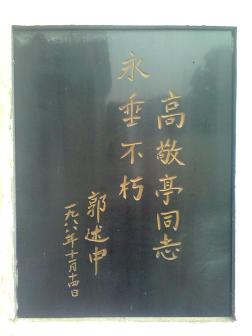 高敬亭同志
永垂不朽
郭述申
一九八八年十一月十四日